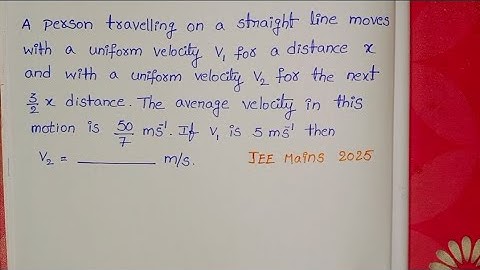 A person travelling on a straight line moves
with a uniform velocity V₁ for a distance x
and with a uniform velocity V₂ for the next
3/2 x distance. The average velocity in this
motion is 50/7 ms⁻¹. If V₁ is 5 ms⁻¹ then
V₂ = ________ m/s.
JEE Mains 2025